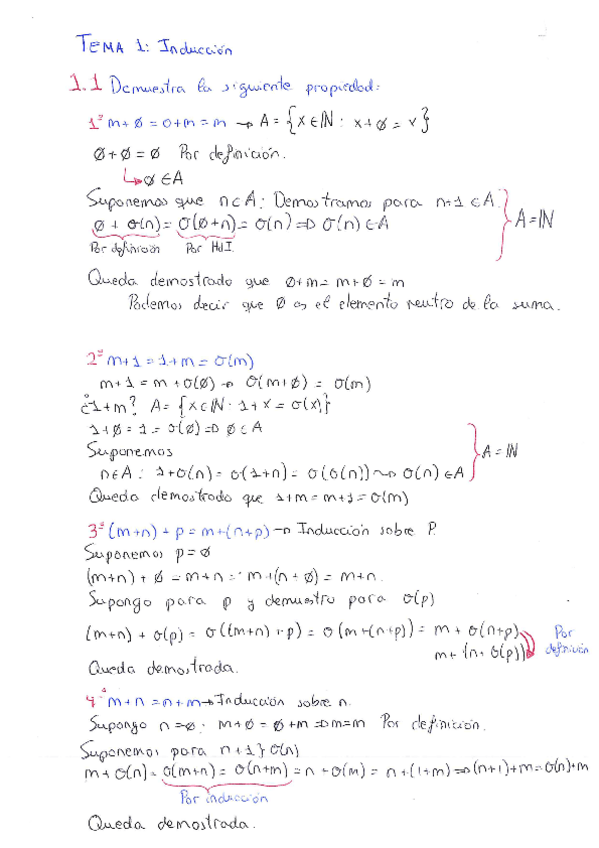 TEMA 1: Inducción
1.1 Demuestra la siguiente propiedad:
1ª m+ø = 0+m = m → A = {x ∈ ℕ : x+ø = x}
ø+ø = ø Por definición.
↳ ø ∈ A
Suponemos que n ∈ A: Demostramos para n+1 ∈ A.
ø + σ(n) = σ(ø+n) = σ(n) ⇒ σ(n) ∈ A } A = ℕ
Por definición Por HdI.
Queda demostrado que ø+m = m+ø = m
Podemos decir que ø es el elemento neutro de la suma.
2ª m+1 = 1+m = σ(m)
m+1 = m+σ(ø) → σ(m+ø) = σ(m)
¿1+m? A = {x ∈ ℕ : 1+x = σ(x)}
1+ø = 1 = σ(ø) ⇒ ø ∈ A
Suponemos } A = ℕ
n ∈ A : 1+σ(n) = σ(1+n) = σ(σ(n)) ⇝ σ(n) ∈ A
Queda demostrado que 1+m = m+1 = σ(m)
3ª (m+n)+p = m+(n+p) → Inducción sobre P.
Suponemos p = ø
(m+n)+ø = m+n = m+(n+ø) = m+n.
Supongo para p y demuestro para σ(p)
(m+n)+σ(p) = σ((m+n)+p) = σ(m+(n+p)) = m+σ(n+p) Por
m+(n+σ(p)) definición
Queda demostrada.
4ª m+n = n+m → Inducción sobre n.
Supongo n=ø: m+ø = ø+m ⇒ m=m Por definición.
Suponemos para n+1} σ(n)
m+σ(n) = σ(m+n) = σ(n+m) = n+σ(m) = n+(1+m) ⇒ (n+1)+m = σ(n)+m
Por inducción
Queda demostrada.